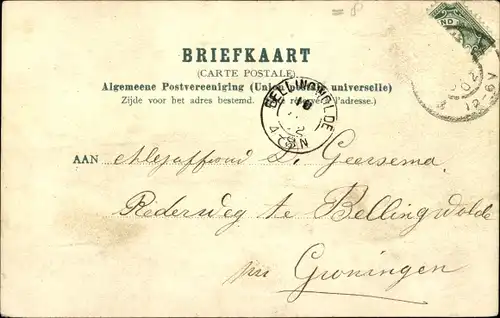 = 8
ND
BRIEFKAART
(CARTE POSTALE)
Algemeene Postvereeniging (Union postale universelle)
Zijde voor het adres bestemd. Côté réservé à l'adresse.)
BELLINGWOLDE
10
4-8N
AAN Mejuffrouw S. Geersema
Rederweg te Bellingwolde
pr. Groningen